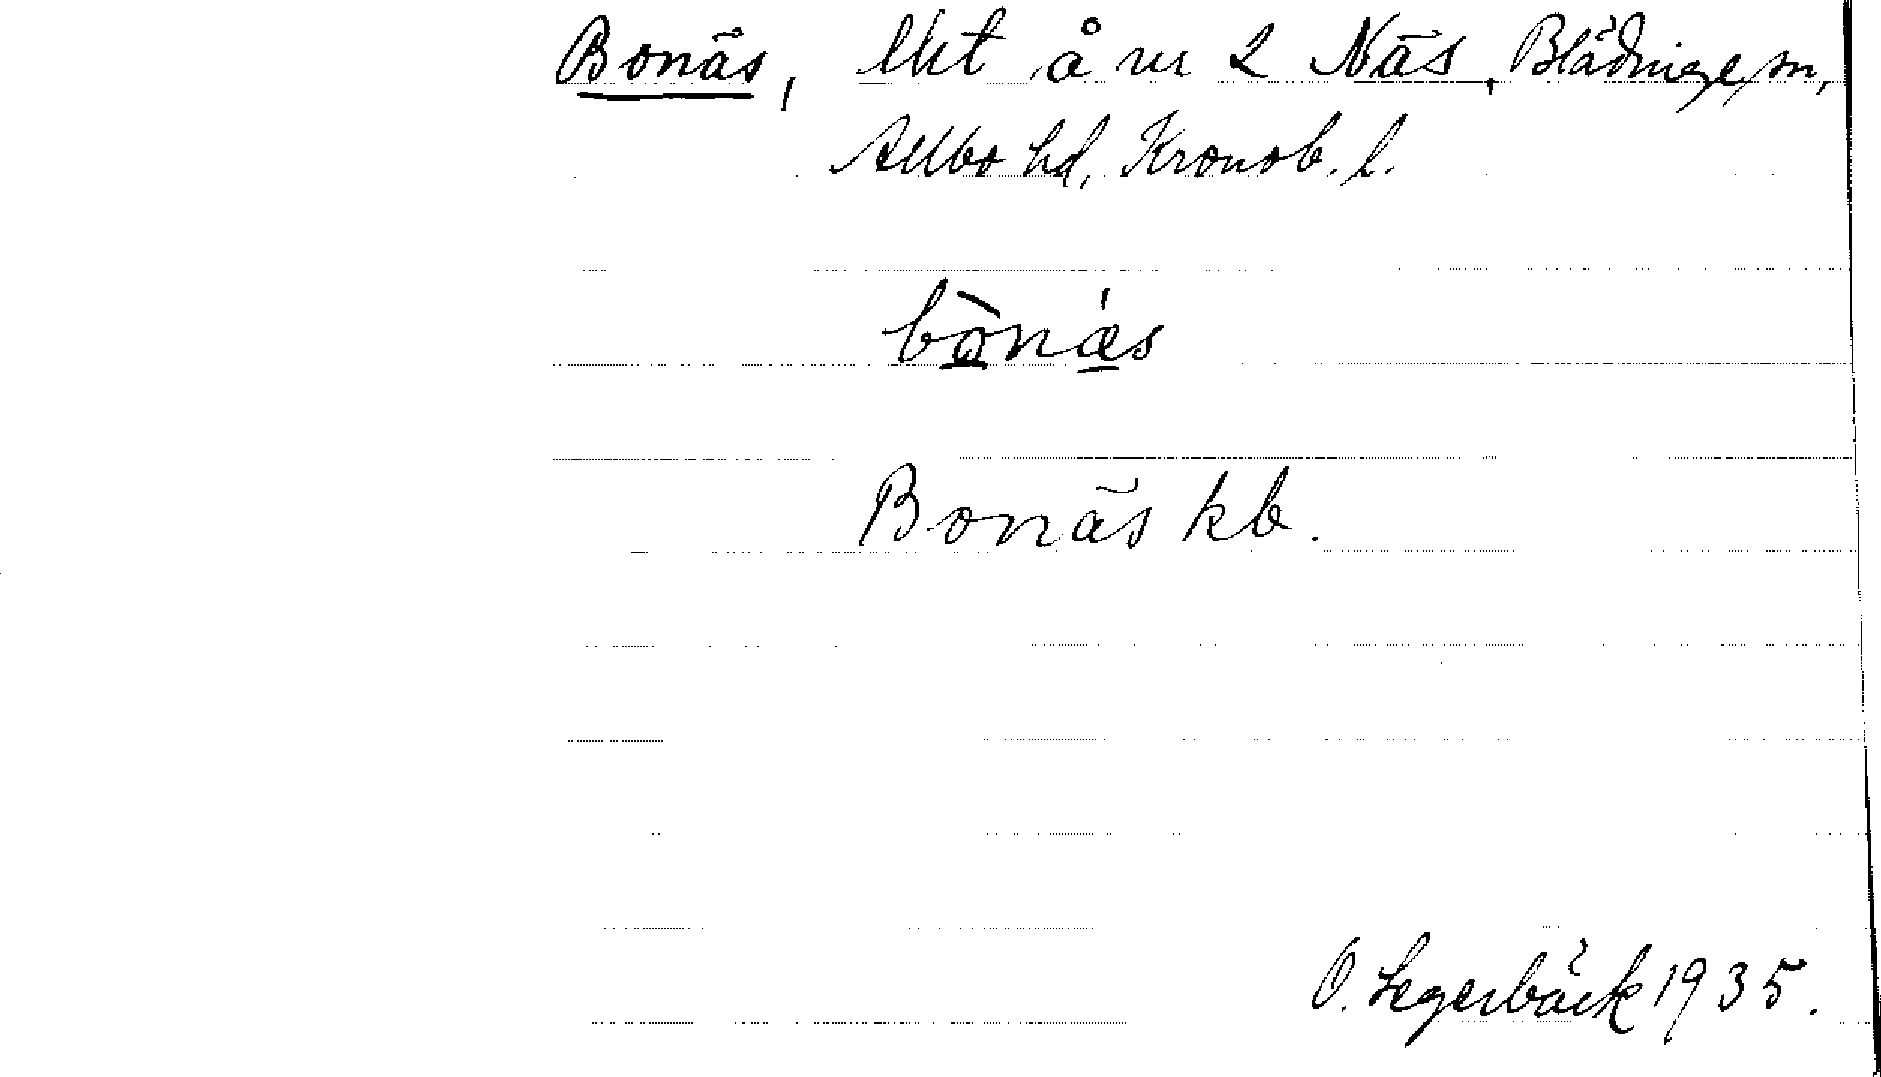 Bonäs, lht å nr 2 Näs, Blädinge sn,
Allbo hd, Kronob. l.
bònǽs
Bonäs kb.
O. Legerbäck 1935.